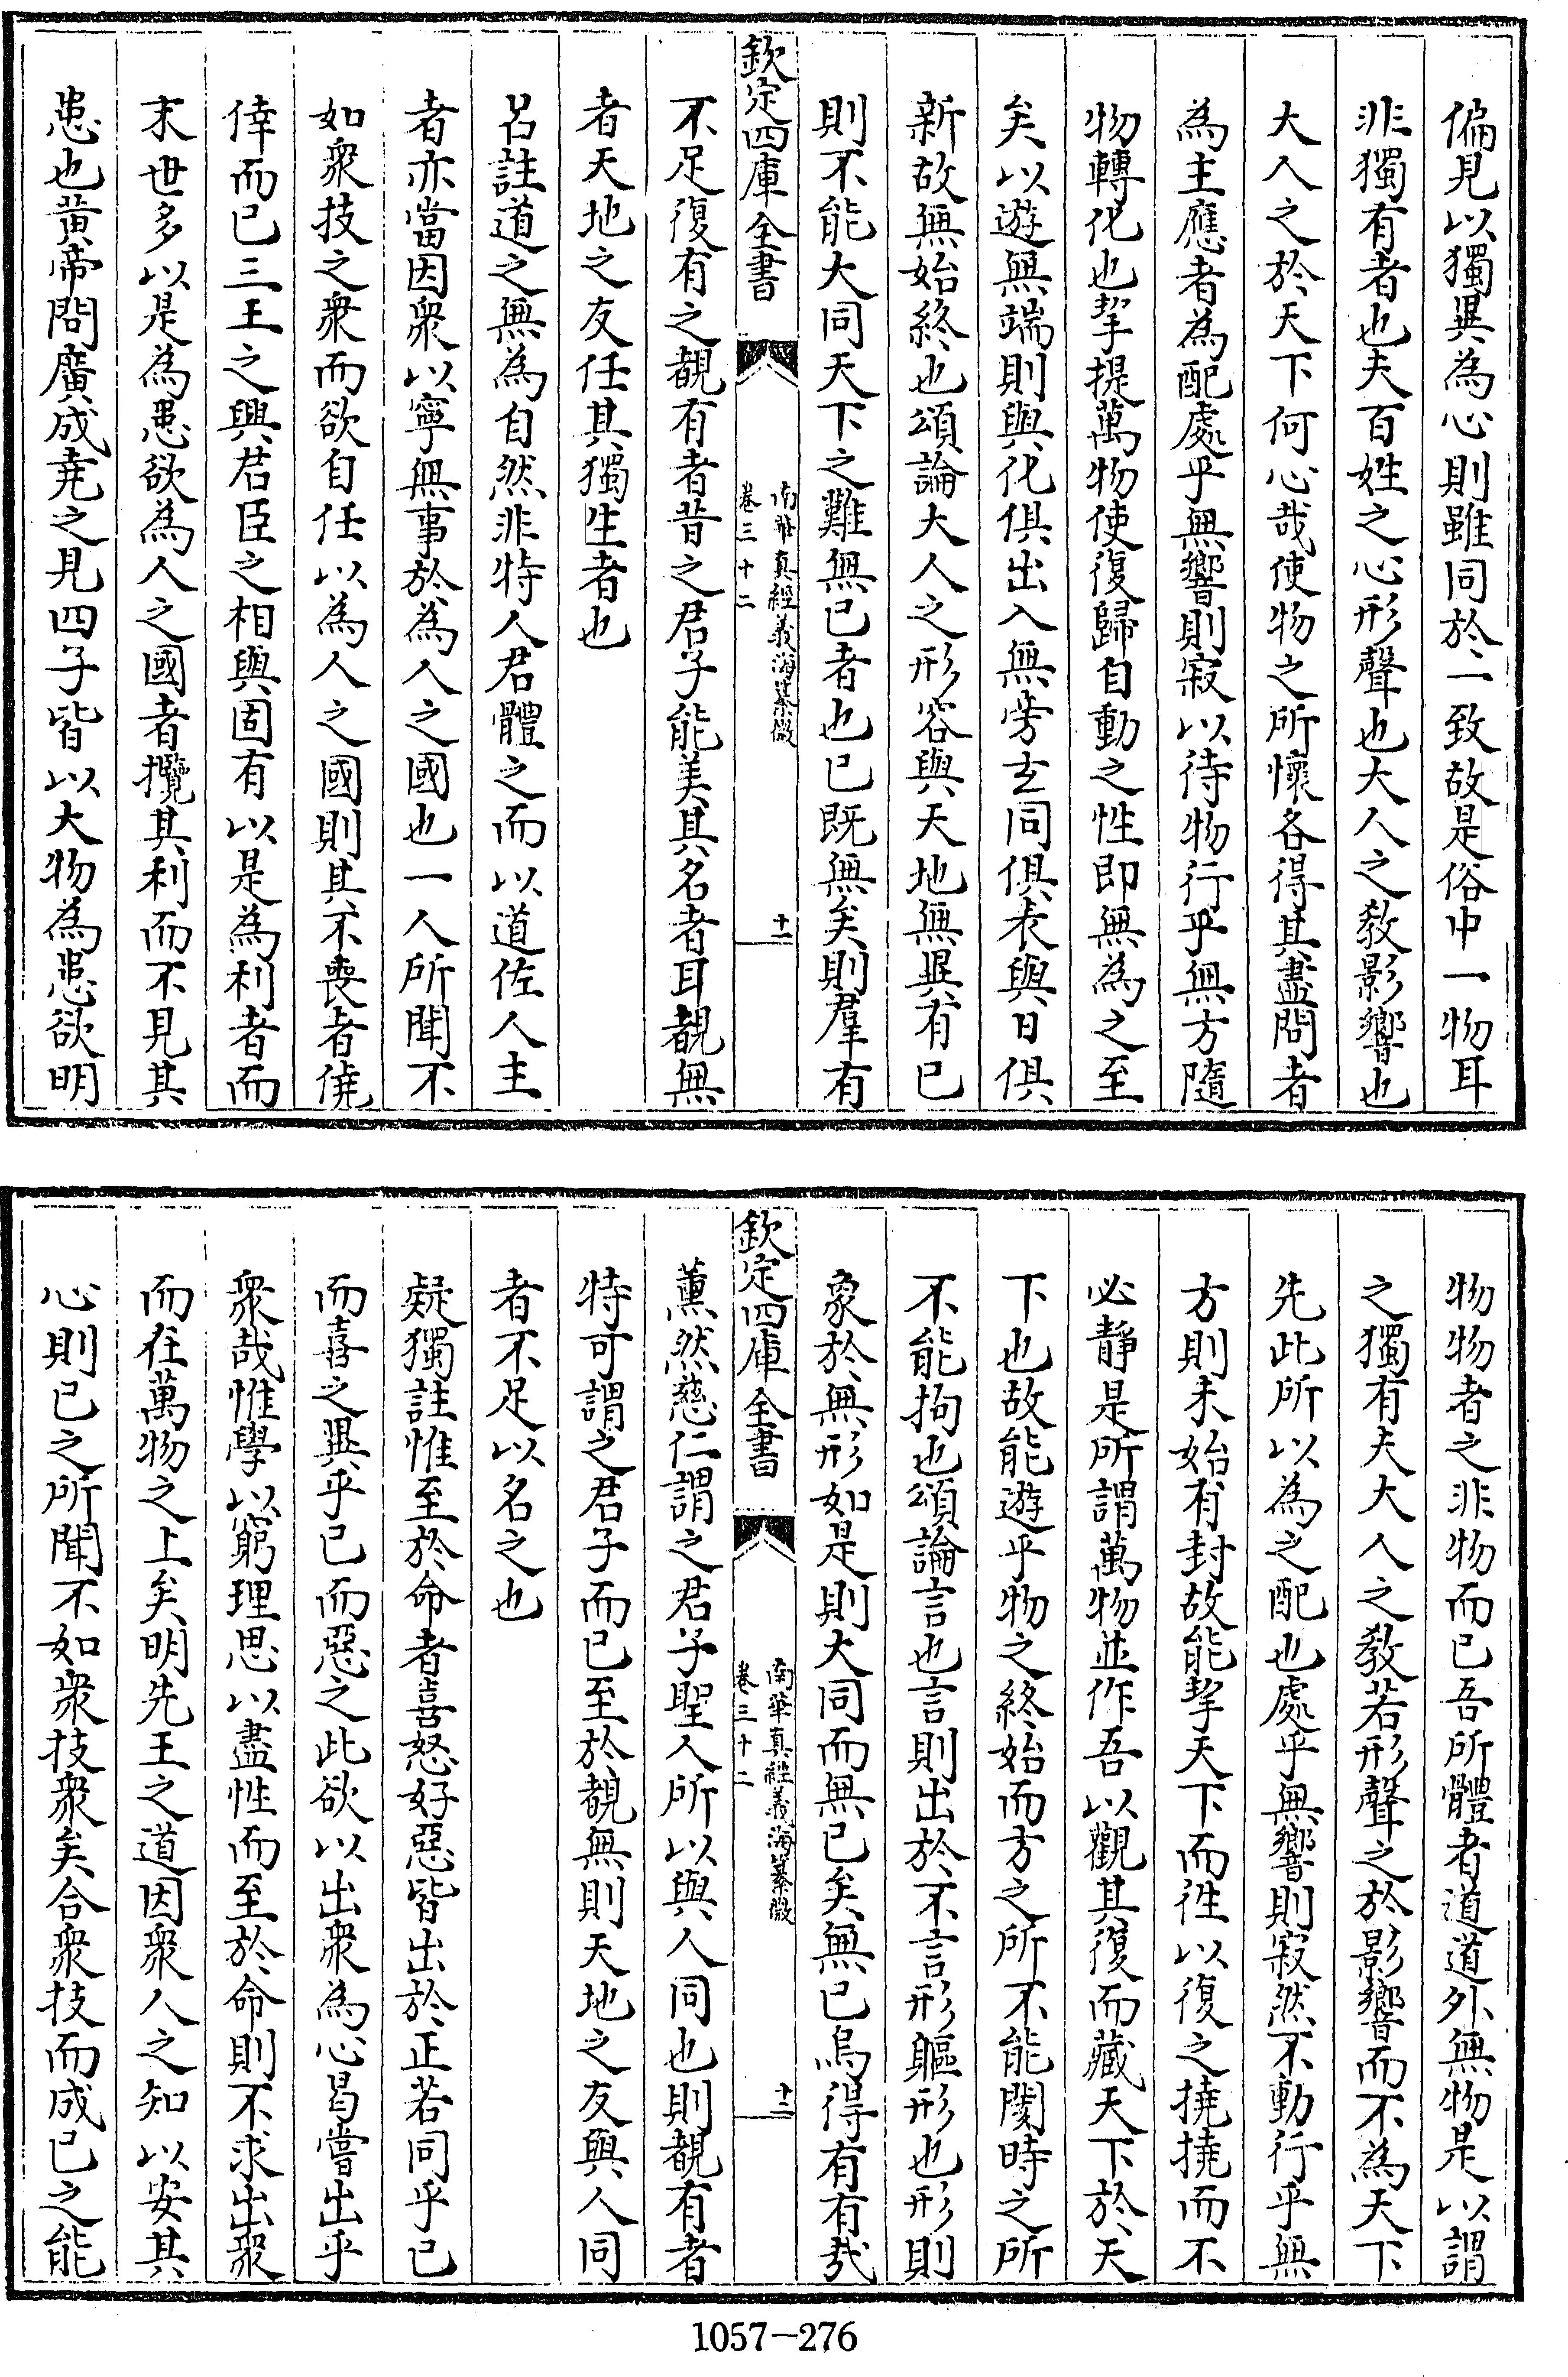 偏見以獨異為心則雖同於一致故是俗中一物耳
非獨有者也夫百姓之心形聲也大人之教影響也
大人之於天下何心哉使物之所懷各得其盡問者
為主應者為配處乎無響則寂以待物行乎無方隨
物轉化也挈提萬物使復歸自動之性即無為之至
矣以遊無端則與化俱出入無旁玄同俱表與日俱
新故無始終也頌論大人之形容與天地無異有已
則不能大同天下之難無已者也已既無矣則羣有
欽定四庫全書
南華真經義海纂微
卷三十二
十一
不足復有之覩有者昔之君子能美其名者耳覩無
者天地之友任其獨生者也
呂註道之無為自然非特人君體之而以道佐人主
者亦當因衆以寧無事於為人之國也一人所聞不
如衆技之衆而欲自任以為人之國則其不喪者僥
倖而已三王之興君臣之相與固有以是為利者而
末世多以是為患欲為人之國者攬其利而不見其
患也黄帝問廣成堯之見四子皆以大物為患欲明
物物者之非物而已吾所體者道道外無物是以謂
之獨有夫大人之教若形聲之於影響而不為天下
先此所以為之配也處乎無響則寂然不動行乎無
方則未始有封故能挈天下而徃以復之撓撓而不
必靜是所謂萬物並作吾以觀其復而藏天下於天
下也故能遊乎物之終始而方之所不能閡時之所
不能拘也頌論言也言則出於不言形軀形也形則
象於無形如是則大同而無已矣無已烏得有有哉
欽定四庫全書
南華真經義海纂微
卷三十二
十二
薰然慈仁謂之君子聖人所以與人同也則覩有者
特可謂之君子而已至於覩無則天地之友與人同
者不足以名之也
疑獨註惟至於命者喜怒好惡皆出於正若同乎已
而喜之異乎已而惡之此欲以出衆為心曷嘗出乎
衆哉惟學以窮理思以盡性而至於命則不求出衆
而在萬物之上矣明先王之道因衆人之知以安其
心則已之所聞不如衆技衆矣合衆技而成已之能
1057-276